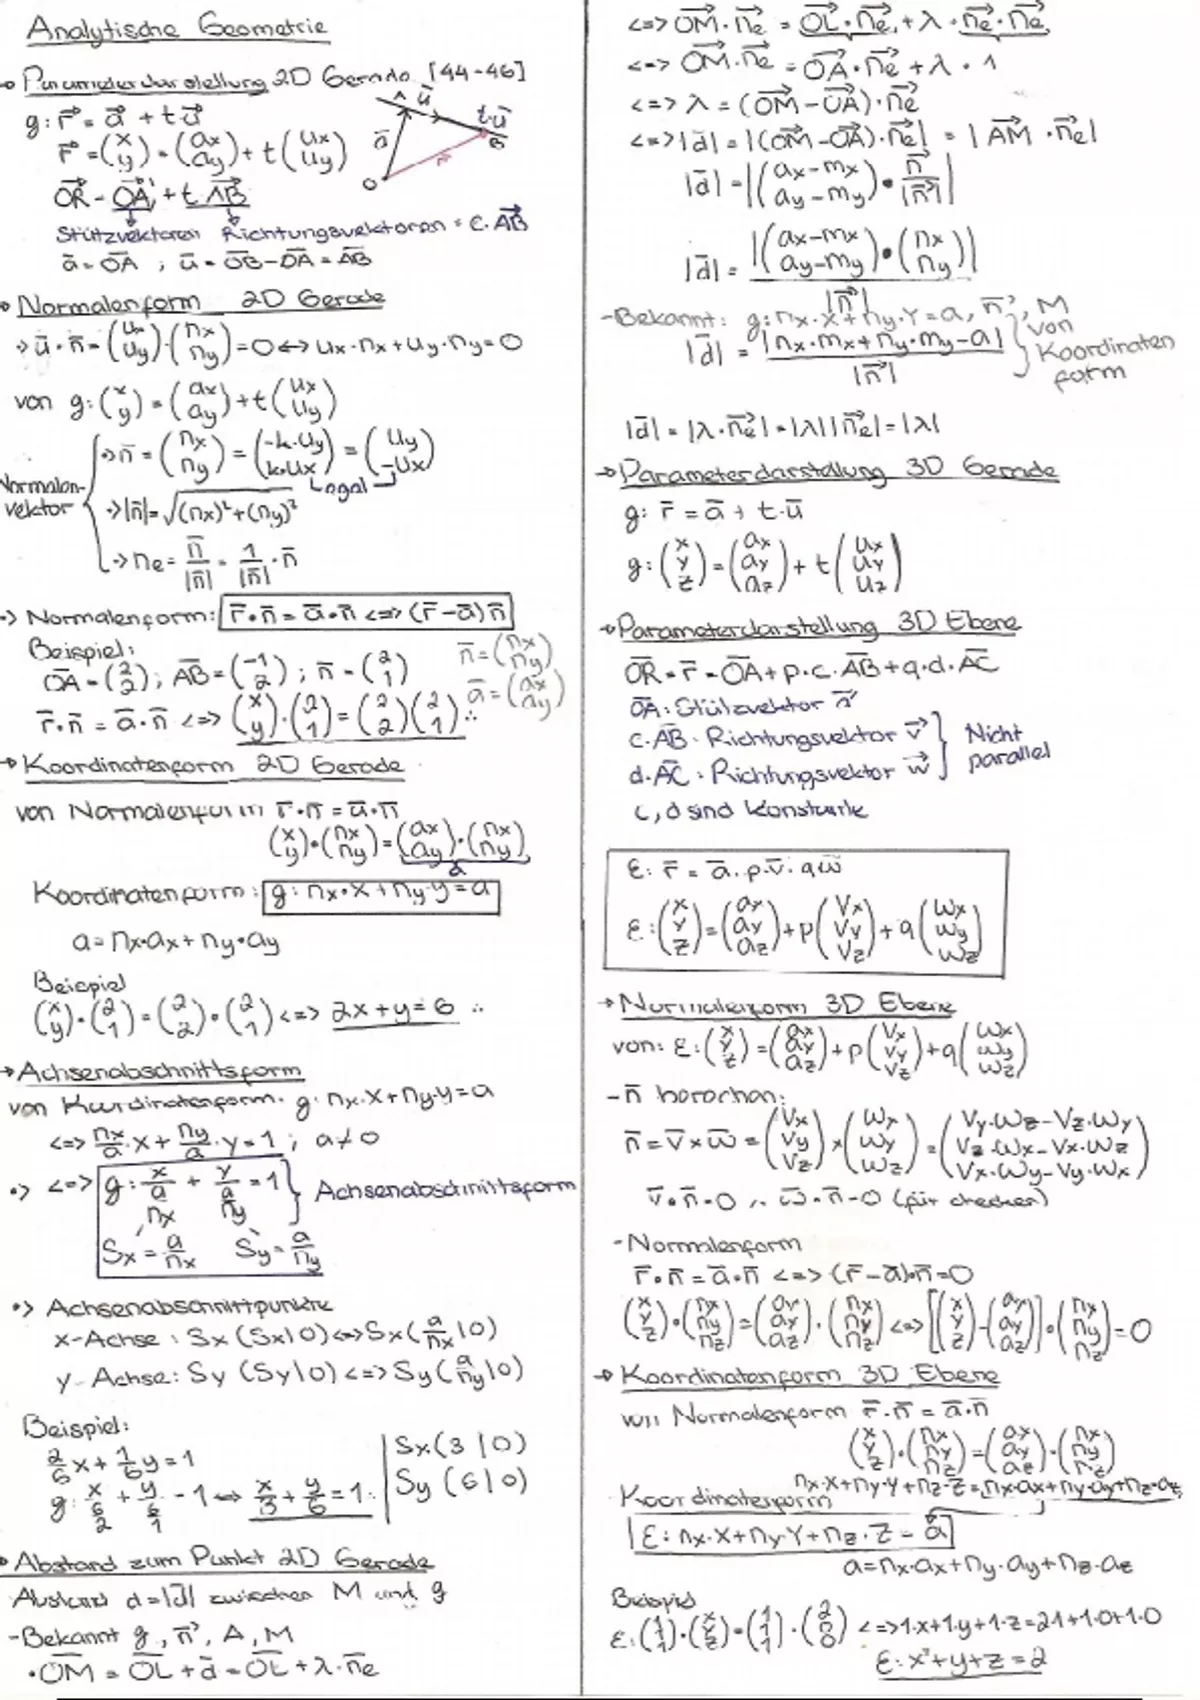 Analytische Geometrie
→ Parameterdarstellung 2D Gerade [44-46]
g: r⃗ = a⃗ + t u⃗
r⃗ = (x y) = (ax ay) + t (ux uy)
A u⃗ t·u⃗ B a⃗ r⃗ O
OR = OA + t·AB
Stützvektoren Richtungsvektoren = c·AB
a⃗ = OA ; u⃗ = OB - OA = AB
→ Normalenform 2D Gerade
→ u⃗ · n⃗ = (ux uy) · (nx ny) = 0 <=> ux·nx + uy·ny = 0
von g: (x y) = (ax ay) + t (ux uy)
Normalenvektor
→ n⃗ = (nx ny) = (-k·uy k·ux) = (uy -ux)
egal
→ |n⃗| = √((nx)² + (ny)²)
→ ne = n⃗/|n⃗| = 1/|n⃗| · n⃗
→ Normalenform: r⃗ • n⃗ = a⃗ • n⃗ <=> (r⃗ - a⃗) n⃗
Beispiel: n⃗ = (nx ny)
OA = (2 2) ; AB = (-1 2) ; n⃗ = (2 1) a⃗ = (ax ay)
r⃗ • n⃗ = a⃗ • n⃗ <=> (x y) · (2 1) = (2 2) (2 1) ∴
→ Koordinatenform 2D Gerade
von Normalenform r⃗ • n⃗ = a⃗ • n⃗
(x y) • (nx ny) = (ax ay) · (nx ny)
a
Koordinatenform: g: nx·x + ny·y = a
a = nx·ax + ny·ay
Beispiel
(x y) · (2 1) = (2 2) • (2 1) <=> 2x + y = 6 ∴
→ Achsenabschnittsform
von Koordinatenform. g: nx·x + ny·y = a
<=> nx/a · x + ny/a · y = 1 ; a ≠ 0
•> <=> g: x/(a/nx) + y/(a/ny) = 1 } Achsenabschnittsform
Sx = a/nx Sy = a/ny
•> Achsenabschnittpunkte
x-Achse : Sx (Sx|0) <=> Sx (a/nx |0)
y-Achse: Sy (Sy|0) <=> Sy (a/ny |0)
Beispiel:
2/6 x + 1/6 y = 1 | Sx (3|0)
g: x/(6/2) + y/(6/1) = 1 <=> x/3 + y/6 = 1 ∴ | Sy (6|0)
→ Abstand zum Punkt 2D Gerade
Abstand d = |d⃗| zwischen M und g
- Bekannt g, n⃗, A, M
• OM = OL + d⃗ = OL + λ·ne
<=> OM · ne = OL · ne + λ · ne · ne
<=> OM · ne = OA · ne + λ · 1
<=> λ = (OM - OA) · ne
<=> |d⃗| = |(OM - OA) · ne| = |AM · ne|
|d⃗| = |(ax-mx ay-my) • n⃗/|n⃗||
|d⃗| = |(ax-mx ay-my) • (nx ny)| / |n⃗|
- Bekannt: g: nx·x + ny·y = a, n⃗, M
|d⃗| = |nx·mx + ny·my - a| / |n⃗| } von Koordinatenform
|d⃗| = |λ · ne| = |λ| |ne| = |λ|
→ Parameterdarstellung 3D Gerade
g: r⃗ = a⃗ + t·u⃗
g: (x y z) = (ax ay az) + t (ux uy uz)
→ Parameterdarstellung 3D Ebene
OR = r⃗ = OA + p·c·AB + q·d·AC
OA : Stützvektor a⃗
c·AB : Richtungsvektor v⃗
d·AC : Richtungsvektor w⃗ } Nicht parallel
c, d sind Konstante
ε: r⃗ = a⃗ · p·v⃗ · q w⃗
ε: (x y z) = (ax ay az) + p (vx vy vz) + q (wx wy wz)
→ Normalenform 3D Ebene
von: ε: (x y z) = (ax ay az) + p (vx vy vz) + q (wx wy wz)
- n⃗ berechen:
n⃗ = v⃗ × w⃗ = (vx vy vz) × (wx wy wz) = (vy·wz - vz·wy vz·wx - vx·wz vx·wy - vy·wx)
v⃗ • n⃗ = 0 ∧ w⃗ • n⃗ = 0 (für checken)
- Normalenform
r⃗ • n⃗ = a⃗ • n⃗ <=> (r⃗ - a⃗) • n⃗ = 0
(x y z) • (nx ny nz) = (ax ay az) · (nx ny nz) <=> [(x y z) - (ax ay az)] • (nx ny nz) = 0
→ Koordinatenform 3D Ebene
von Normalenform r⃗ · n⃗ = a⃗ · n⃗
(x y z) • (nx ny nz) = (ax ay az) • (nx ny nz)
nx·x + ny·y + nz·z = nx·ax + ny·ay + nz·az
Koordinatenform
ε: nx·x + ny·y + nz·z = a
a = nx·ax + ny·ay + nz·az
Beispiel
ε: (1 1 1) · (x y z) = (1 1 1) · (2 0 0) <=> 1·x + 1·y + 1·z = 2·1 + 1·0 + 1·0
ε: x + y + z = 2